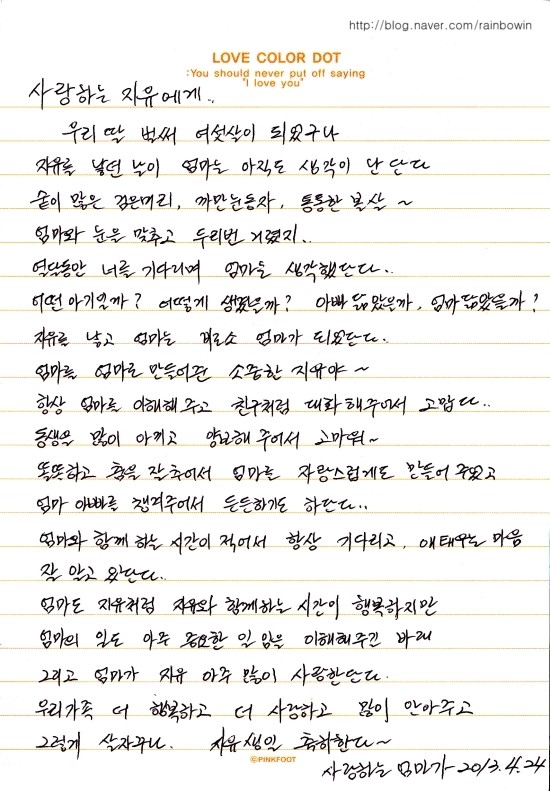 http://blog.naver.com/rainbowin
LOVE COLOR DOT
:You should never put off saying
"I love you"
사랑하는 자유에게..
우리 딸 벌써 여섯살이 되었구나
자유를 낳던 날이 엄마는 아직도 생각이 난단다
숱이 많은 검은머리, 까만눈동자, 통통한 볼살~
엄마와 눈을 맞추고 두리번 거렸지..
열달동안 너를 기다리며 엄마는 생각했단다..
어떤 아기일까? 어떻게 생겼을까? 아빠 닮았을까, 엄마 닮았을까?
자유를 낳고 엄마는 비로소 엄마가 되었단다.
엄마를 엄마로 만들어준 소중한 자유야~
항상 엄마를 이해해 주고 친구처럼 대화해주어서 고맙다..
동생을 많이 아끼고 양보해 주어서 고마워~
똘똘하고 춤을 잘 추어서 엄마를 자랑스럽게도 만들어 주었고
엄마 아빠를 챙겨주어서 든든하기도 하단다..
엄마와 함께 하는 시간이 적어서 항상 기다리고, 애태우는 마음
잘 알고 있단다..
엄마도 자유처럼 자유와 함께하는 시간이 행복하지만
엄마의 일도 아주 중요한 일 임을 이해해주길 바래
그리고 엄마가 자유 아주 많이 사랑한단다.
우리가족 더 행복하고 더 사랑하고 많이 안아주고
그렇게 살자꾸나. 자유 생일 축하한다~
©PINKFOOT
사랑하는 엄마가 2013.4.24